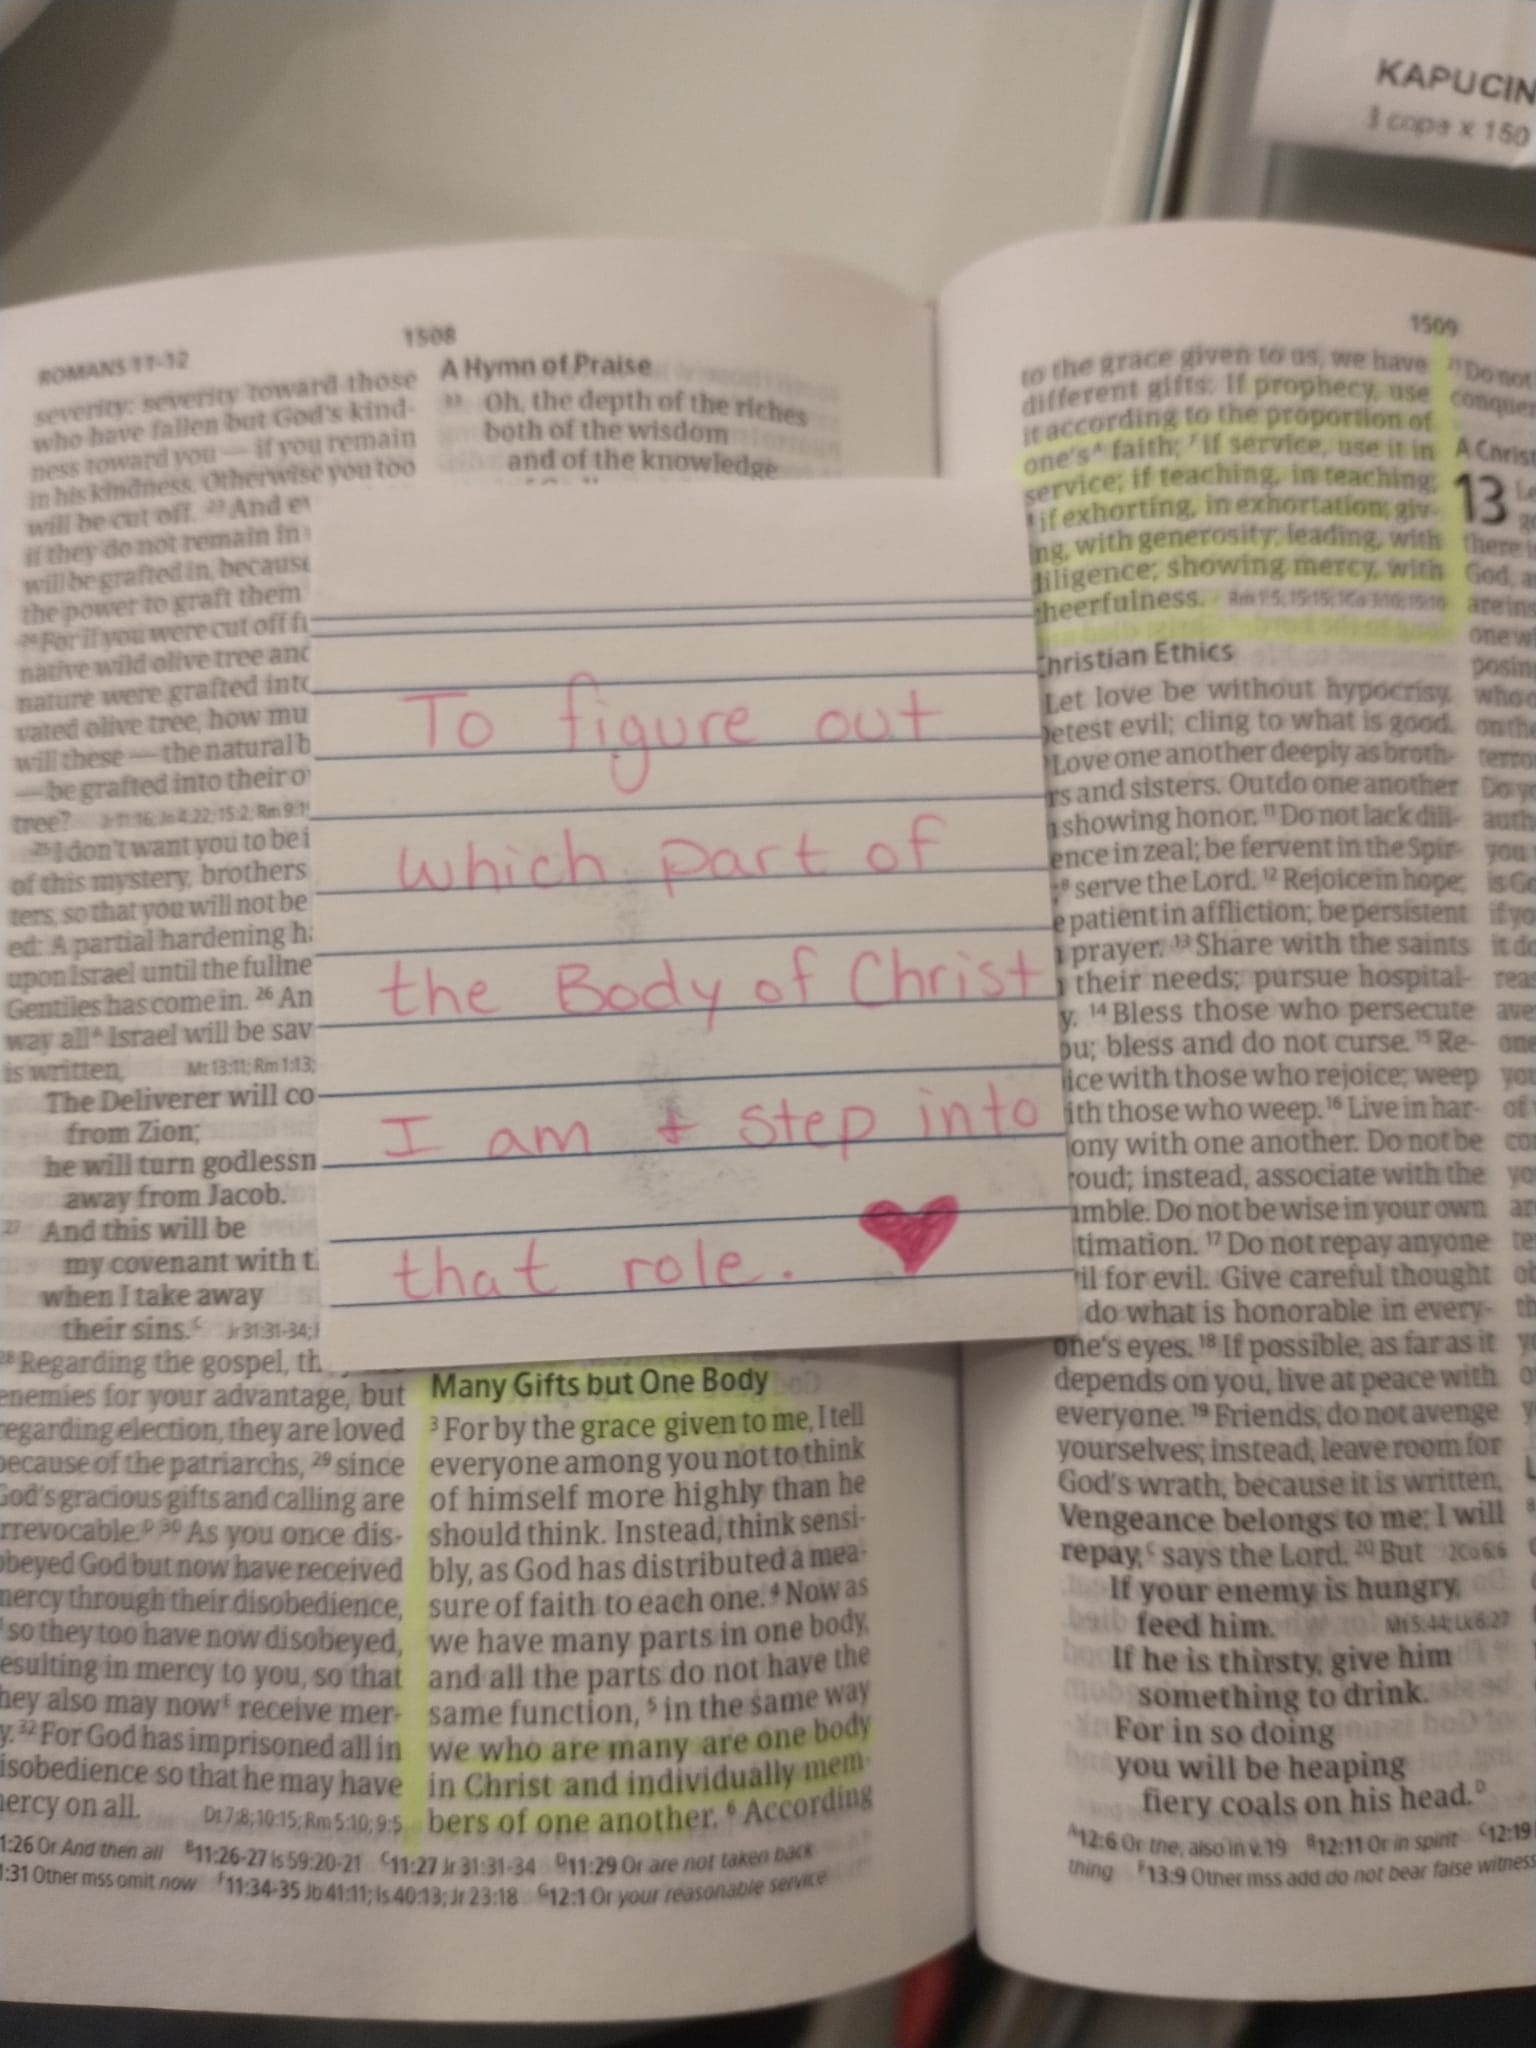 KAPUCIN
3 copa x 150
1508
ROMANS 11-12
severity: severity toward those
who have fallen but God's kind-
ness toward you—if you remain
in his kindness. Otherwise you too
will be cut off. 23 And ev
if they do not remain in
will be grafted in, because
the power to graft them
24 For if you were cut off f
native wild olive tree and
nature were grafted into
vated olive tree, how mu
will these—the natural b
—be grafted into their o
tree?
25 I don't want you to be i
of this mystery, brothers
ters, so that you will not be
ed: A partial hardening ha
upon Israel until the fullne
Gentiles has come in. 26 An
way all A Israel will be sav
is written, Mt 13:11; Rm 1:13;
The Deliverer will co
from Zion;
he will turn godlessn
away from Jacob.
27 And this will be
my covenant with t
when I take away
their sins. C Jr 31:31-34;
28 Regarding the gospel, th
enemies for your advantage, but
regarding election, they are loved
because of the patriarchs, 29 since
God's gracious gifts and calling are
irrevocable. D 30 As you once dis-
obeyed God but now have received
mercy through their disobedience,
so they too have now disobeyed,
resulting in mercy to you, so that
they also may now E receive mer-
y. 32 For God has imprisoned all in
isobedience so that he may have
mercy on all. Dt 7:8; 10:15; Rm 5:10; 9:5
A Hymn of Praise
33 Oh, the depth of the riches
both of the wisdom
and of the knowledge
To figure out
which part of
the Body of Christ
I am + step into
that role.
Many Gifts but One Body
3 For by the grace given to me, I tell
everyone among you not to think
of himself more highly than he
should think. Instead, think sensi-
bly, as God has distributed a mea-
sure of faith to each one. 4 Now as
we have many parts in one body,
and all the parts do not have the
same function, 5 in the same way
we who are many are one body
in Christ and individually mem-
bers of one another. 6 According
1:26 Or And then all B 11:26-27 Is 59:20-21 C 11:27 Jr 31:31-34 D 11:29 Or are not taken back
1:31 Other mss omit now F 11:34-35 Jb 41:11; Is 40:13; Jr 23:18 G 12:1 Or your reasonable service
1509
to the grace given to us, we have
different gifts: If prophecy, use
it according to the proportion of
one's A faith; 7 if service, use it in
service; if teaching, in teaching;
if exhorting, in exhortation; giv-
ng, with generosity; leading, with
diligence; showing mercy, with
cheerfulness.
Christian Ethics
Let love be without hypocrisy.
Detest evil; cling to what is good.
Love one another deeply as broth-
rs and sisters. Outdo one another
n showing honor. 11 Do not lack dili-
ence in zeal; be fervent in the Spir-
B serve the Lord. 12 Rejoice in hope;
e patient in affliction; be persistent
prayer. 13 Share with the saints
their needs; pursue hospital-
y. 14 Bless those who persecute
ou; bless and do not curse. 15 Re-
ice with those who rejoice; weep
ith those who weep. 16 Live in har-
ony with one another. Do not be
roud; instead, associate with the
umble. Do not be wise in your own
timation. 17 Do not repay anyone
il for evil. Give careful thought
do what is honorable in every-
one's eyes. 18 If possible, as far as it
depends on you, live at peace with
everyone. 19 Friends, do not avenge
yourselves; instead, leave room for
God's wrath, because it is written,
Vengeance belongs to me; I will
repay, C says the Lord. 20 But 2Co 6:6
If your enemy is hungry,
feed him. Mt 5:44; Lk 6:27
If he is thirsty, give him
something to drink.
For in so doing
you will be heaping
fiery coals on his head. D
A 12:6 Or the, also in v. 19 B 12:11 Or in spirit C 12:19
thing F 13:9 Other mss add do not bear false witness
Do not
conquer
A Christ
13
there i
God, a
are ins
one w
posin
who o
on the
terro
Do yo
auth
you
is Go
if yo
it do